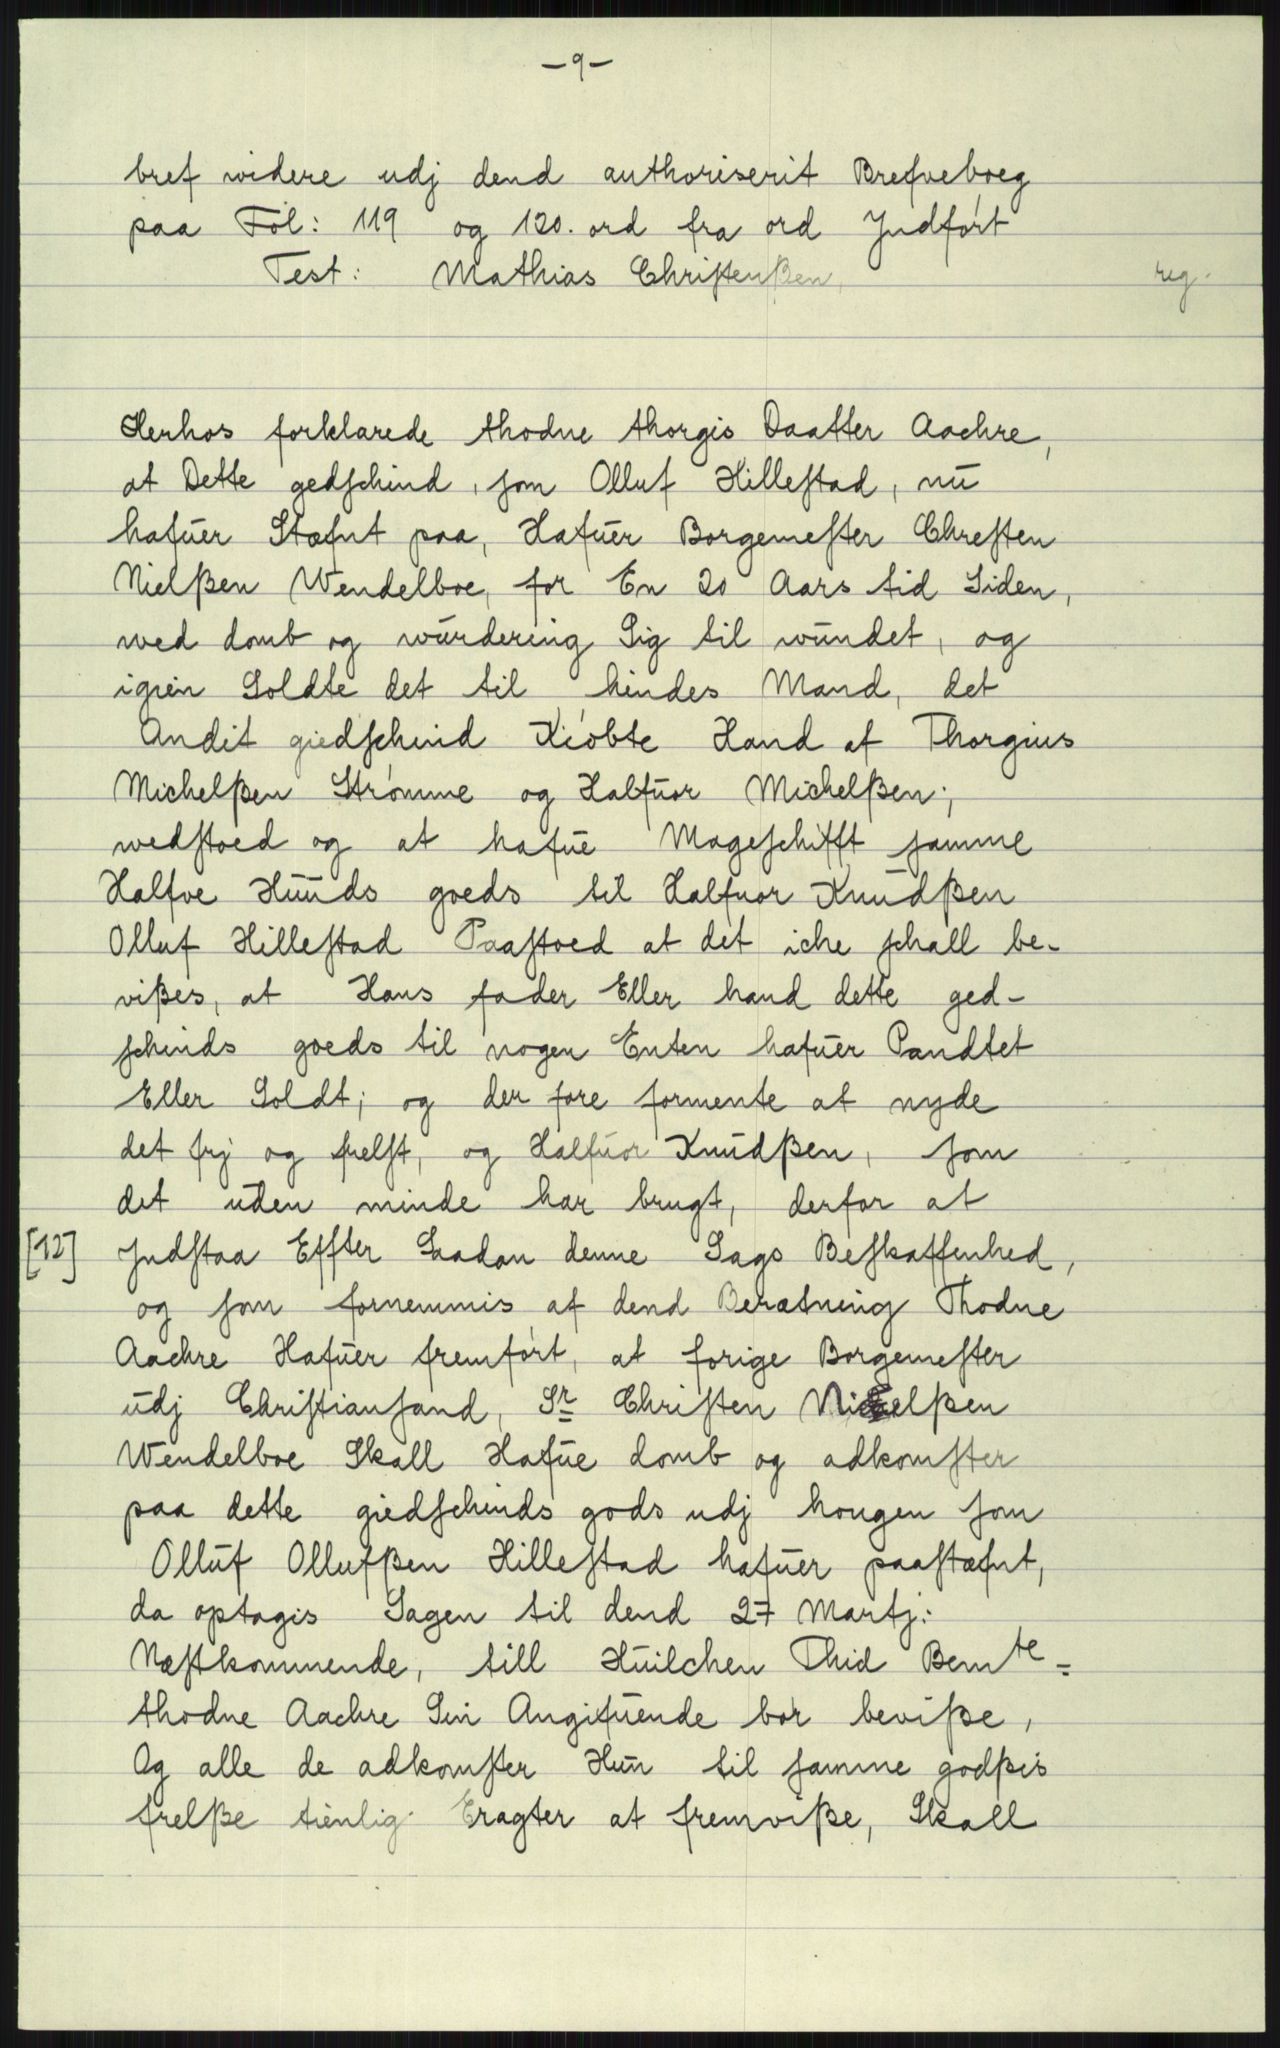 - 9 -
bref widere udj dend authoriserit Brefveboeg
paa Fol: 119 og 120. ord fra ord Jndført
Test: Mathias Christenßen
reg.
Herhos forklarede thodne thorgis Daatter Aachre,
at Dette gedschind, som Olluf Hillestad, nu
hafuer Stæfnt paa, Hafuer Borgemester Chresten
Nielßen Wendelboe, for En 20 Aars tid Siden,
wed domb og wurdering Sig til wundet, og
igien Soldte det til hindes Mand, det
Andit giedschind Kiøbte Hand af Thorgius
Michelßen Strømme og Halfuor Michelßen;
wedstoed og at hafue Mageschifft samme
Halfve Huuds goeds til Halfuor Knudßen
Olluf Hillestad Paastoed at det iche schall be-
vißes, at Hans fader Eller hand dette ged-
schinds goeds til nogen Enten hafuer Pandtet
Eller Soldt; og der fore formente at nyde
det frj og frelst, og Halfuor Knudßen, som
det uden minde har brugt, derfor at
[12] Jndstaa Effter Saadan denne Sags Beskaffenhed,
og som fornemmis af dend Beretning Thodne
Aachre Hafuer fremført, at forige Borgemester
udj Christiansand, Sr Christen Nielßen
Wendelboe Skall Hafue domb og adkomster
paa dette giedschinds gods udj hougen som
Olluf Ollufßen Hillestad hafuer paastæfnt,
da optagis Sagen til dend 27 Martj:
Næstkommende, till Huilchen Thid Bemte
thodne Aachre Sin Angifuende bør beviße,
Og alle de adkomster Hun til samme godßis
frelße tienlig Eragter at fremviße, Skall